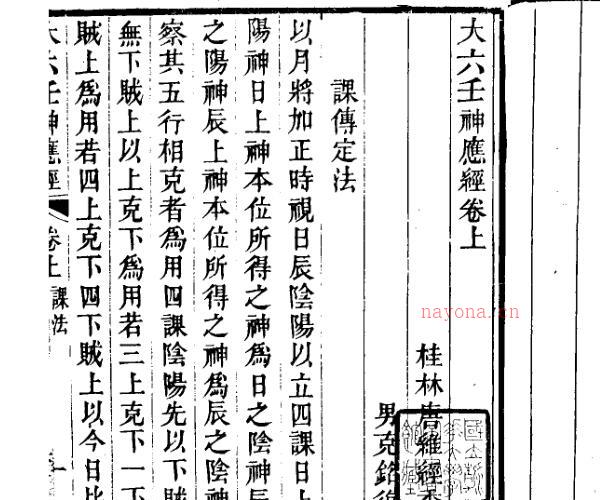 大六壬神應經卷上
桂林唐維經
男克銘
課傳定法
以月將加正時視日辰陰陽以立四課日上
陽神日上神本位所得之神爲日之陰神
之陽神辰上神本位所得之神爲辰之
察其五行相克者爲用四課陰陽先以下賊
無下賊上以上克下爲用若三上克下一下
賊上爲用若四上克下四下賊上以今日比
大六壬神應經 卷上 課法 一
nayona.cn